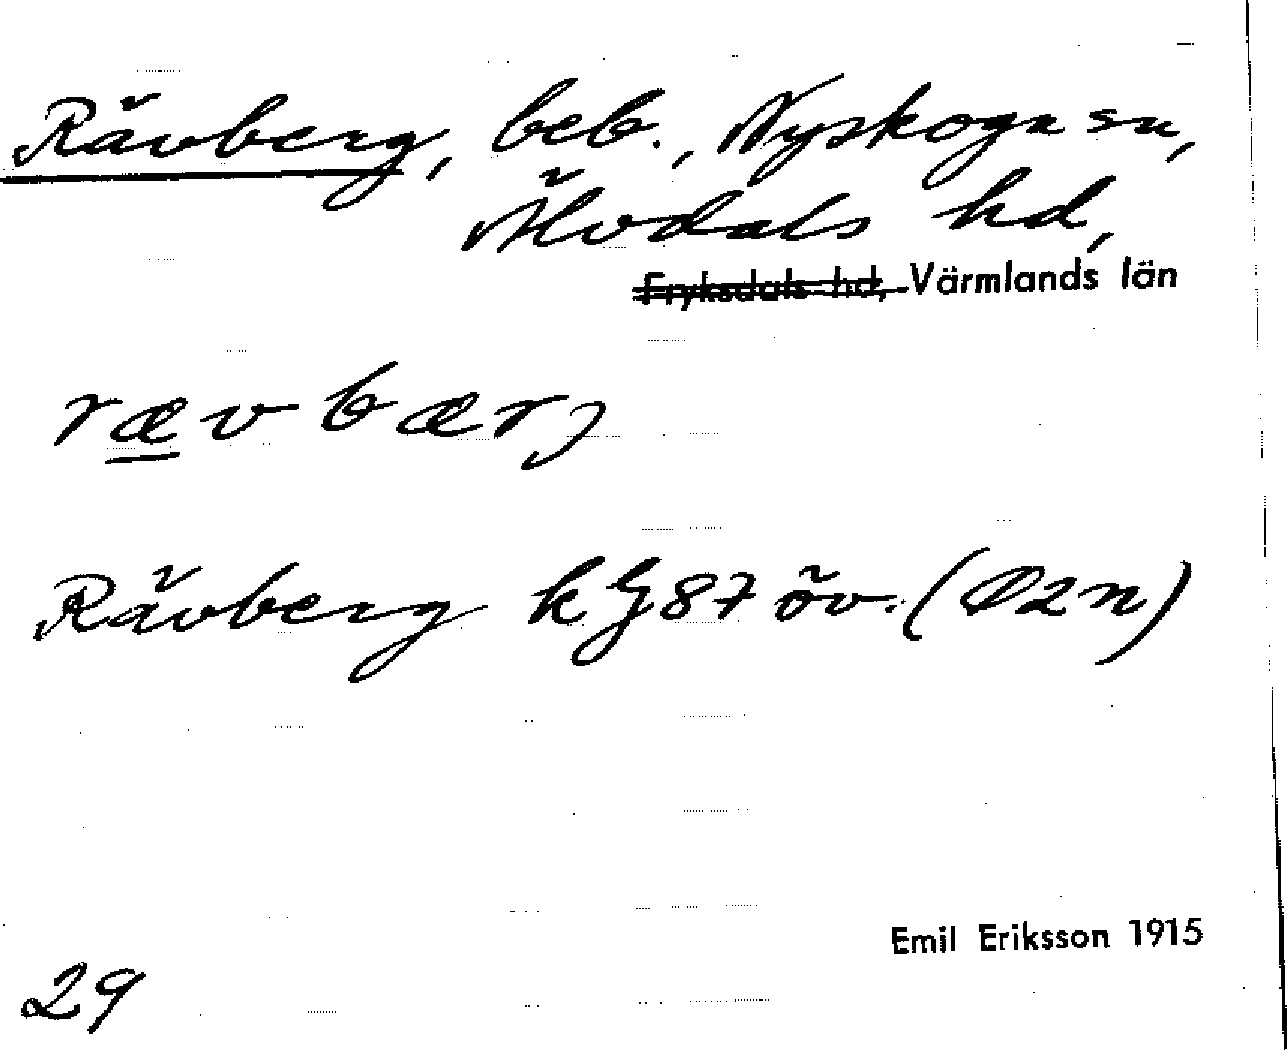 Rävberg, beb., Nyskoga sn,
Älvdals hd,
Fryksdals hd, Värmlands län
rævbærj
Rävberg kG87 öv. (D2n)
Emil Eriksson 1915
29